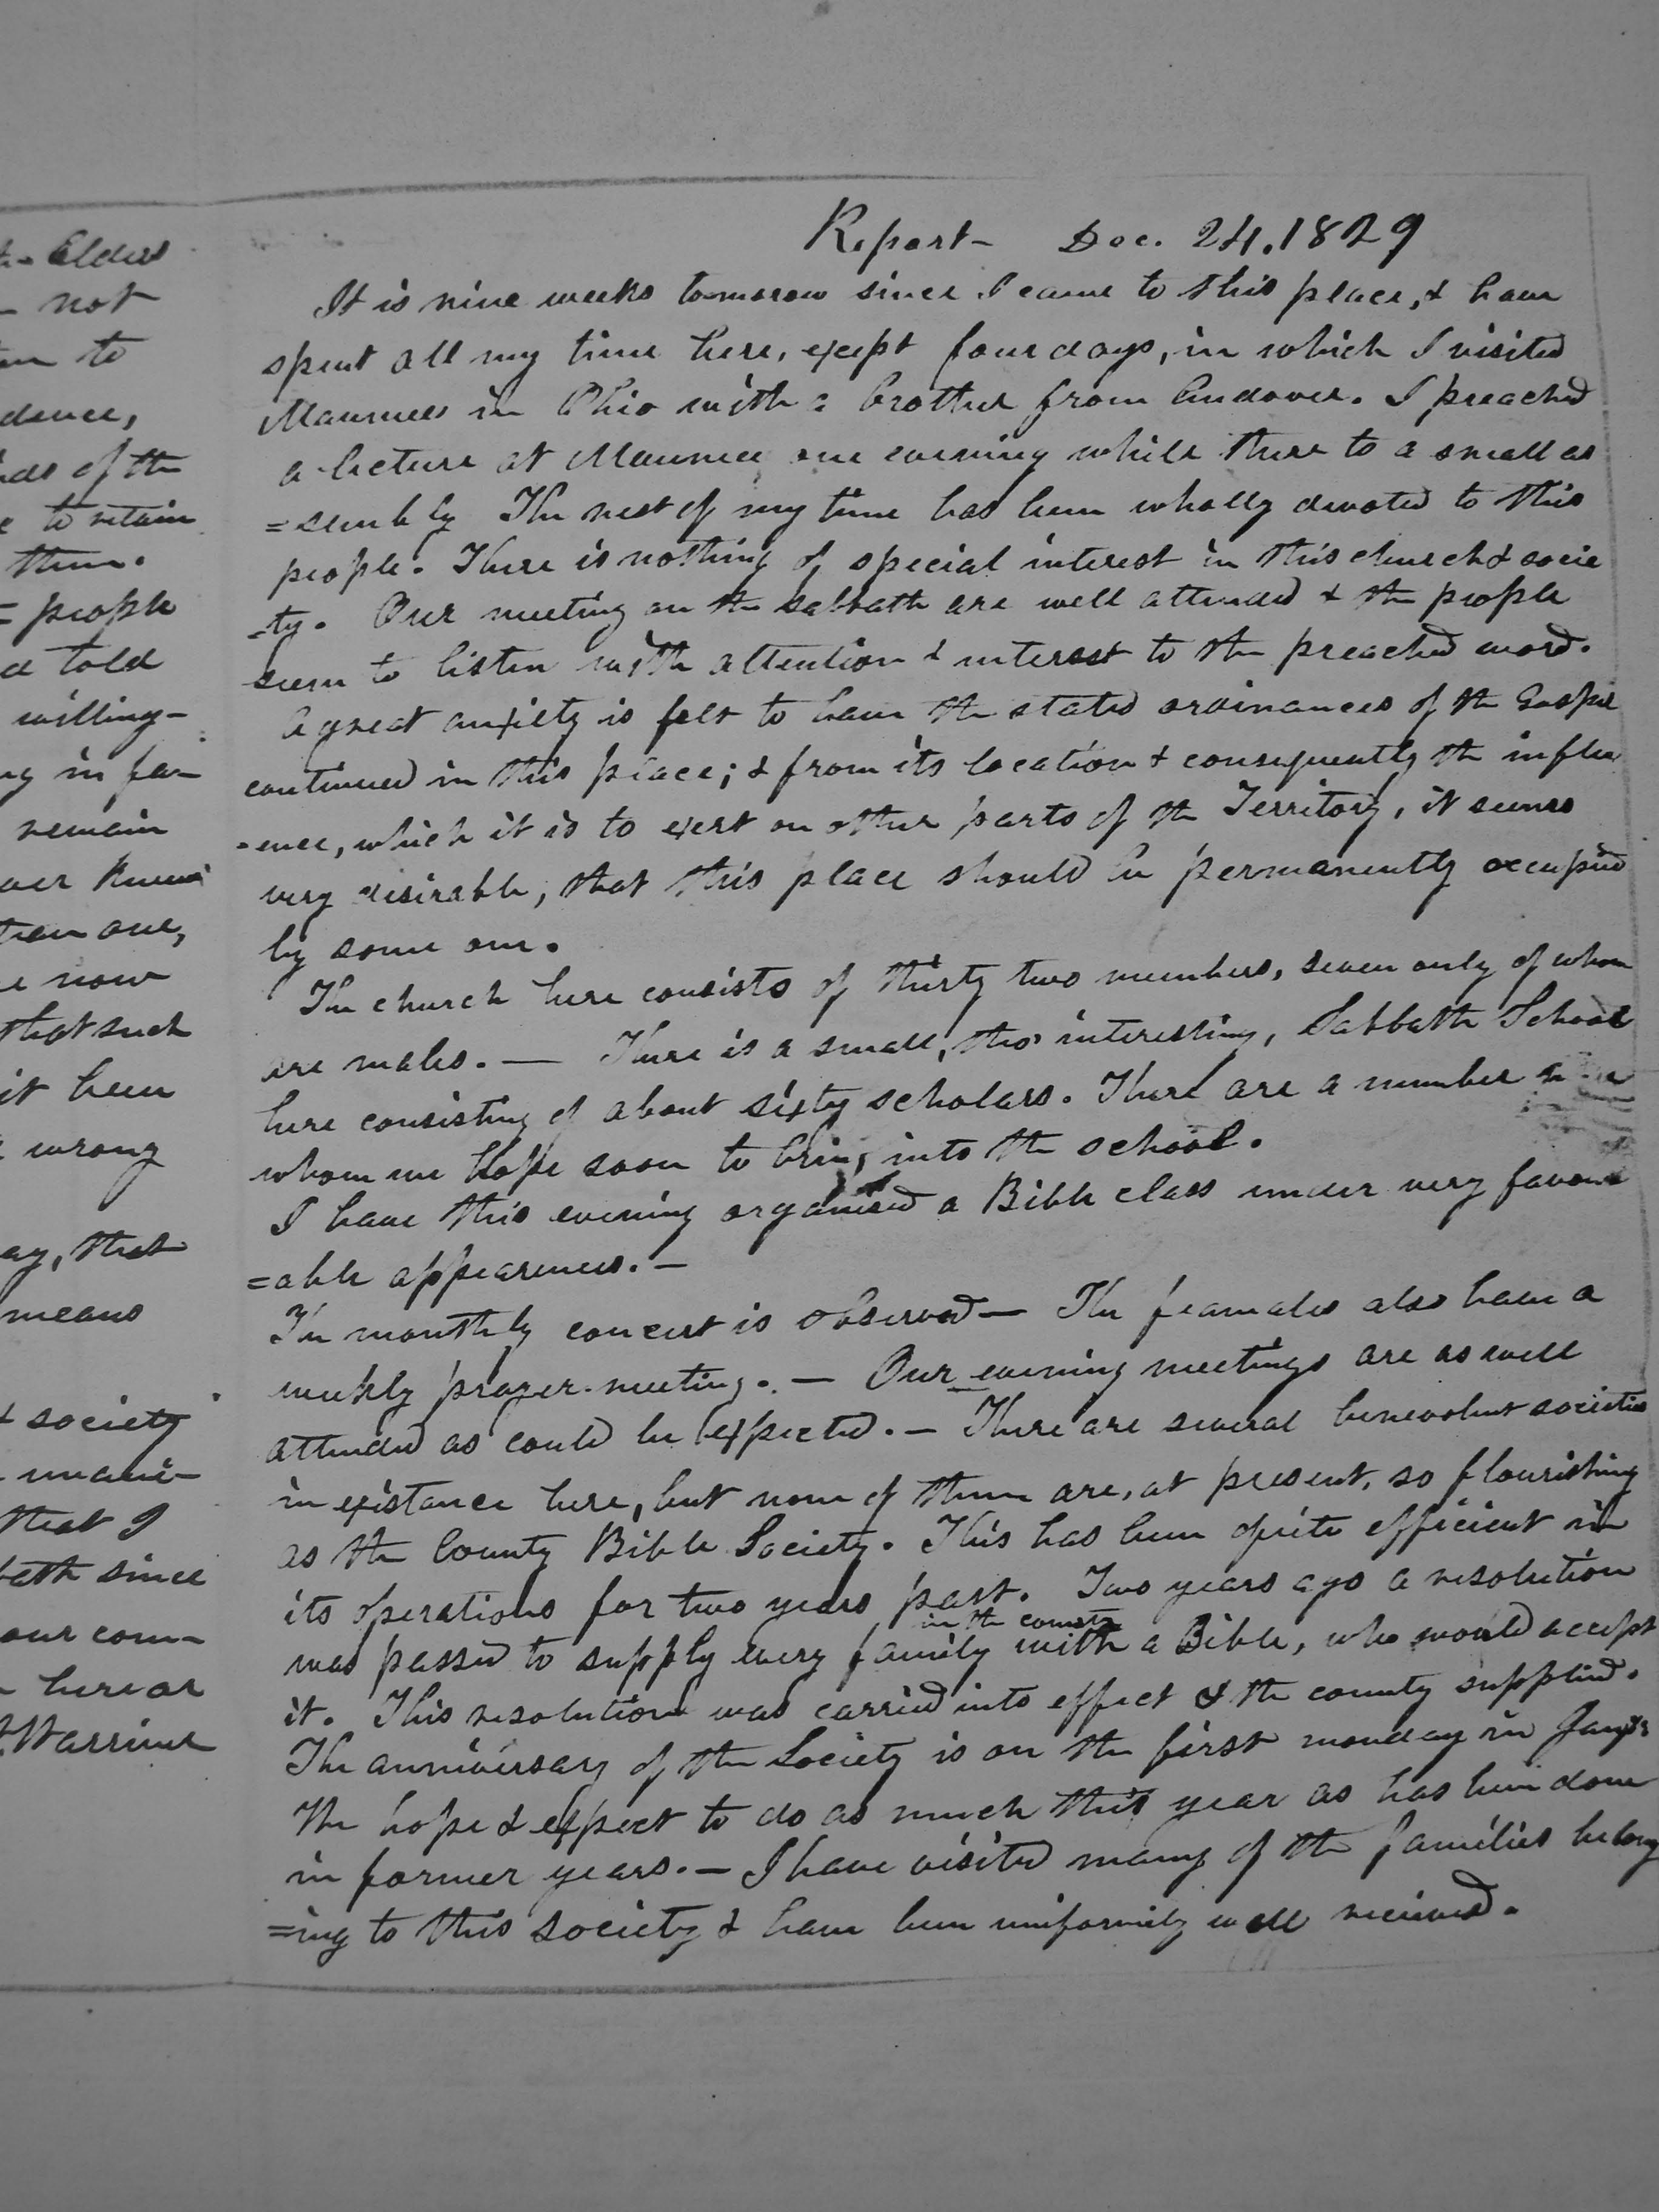 Elders
not
to
dence,
of the
to retain
them.
people
told
willing-
in fa-
remain
one,
now
that such
it been
wrong
that
means
& society
that I
since
our com-
Report - Dec. 24. 1829
It is nine weeks tomorow since I came to this place, & have
spent all my time here, except four days, in which I visited
Maumee in Ohio with a brother from Andover. I preached
a lecture at Maumee one evening while there to a small as
=sembly The rest of my time has been wholly devoted to this
people. There is nothing of special interest in this church & socie
-ty. Our meeting on the Sabbath are well attended & the people
seem to listen with attention & interest to the preached word.
A great anxiety is felt to have the stated ordinances of the Gospel
continued in this place; & from its location & consequently the influ
-ence, which it is to exert on other parts of the Territory, it seems
very desirable, that this place should be permanently occupied
by some one.
The church here consists of thirty two members, seven only of whom
are males. — There is a small, tho' interesting, Sabbath School
here consisting of about sixty scholars. There are a number
whom we hope soon to bring into the school.
I have this evening organised a Bible class under very favour
=able appearences. —
The monthly concert is observed — The feamales also have a
weekly prayer-meeting. — Our evening meetings are as well
attended as could be expected. — There are several benevolent societies
in existance here, but none of them are, at present, so flourishing
as the County Bible Society. This has been quite efficient in
its operations for two years past. Two years ago a resolution
in the county
was passed to supply every family with a Bible, who would accept
it. This resolution was carried into effect & the county supplied.
The anniversary of the Society is on the first monday in Jany.
We hope & expect to do as much this year as has been done
in former years. — I have visited many of the families belong
=ing to this society & have been uniformily well received.